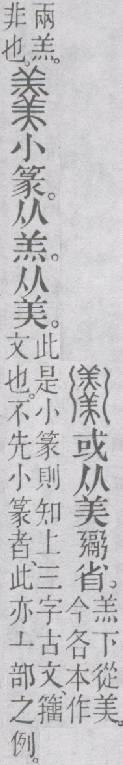 𩱧或从美䰜省。羔下從美。今各本作
兩羔。非也。羹小篆。从羔。从美。此是小篆則知上三字古文、籒文也。不先小篆者、此亦丄部之例。